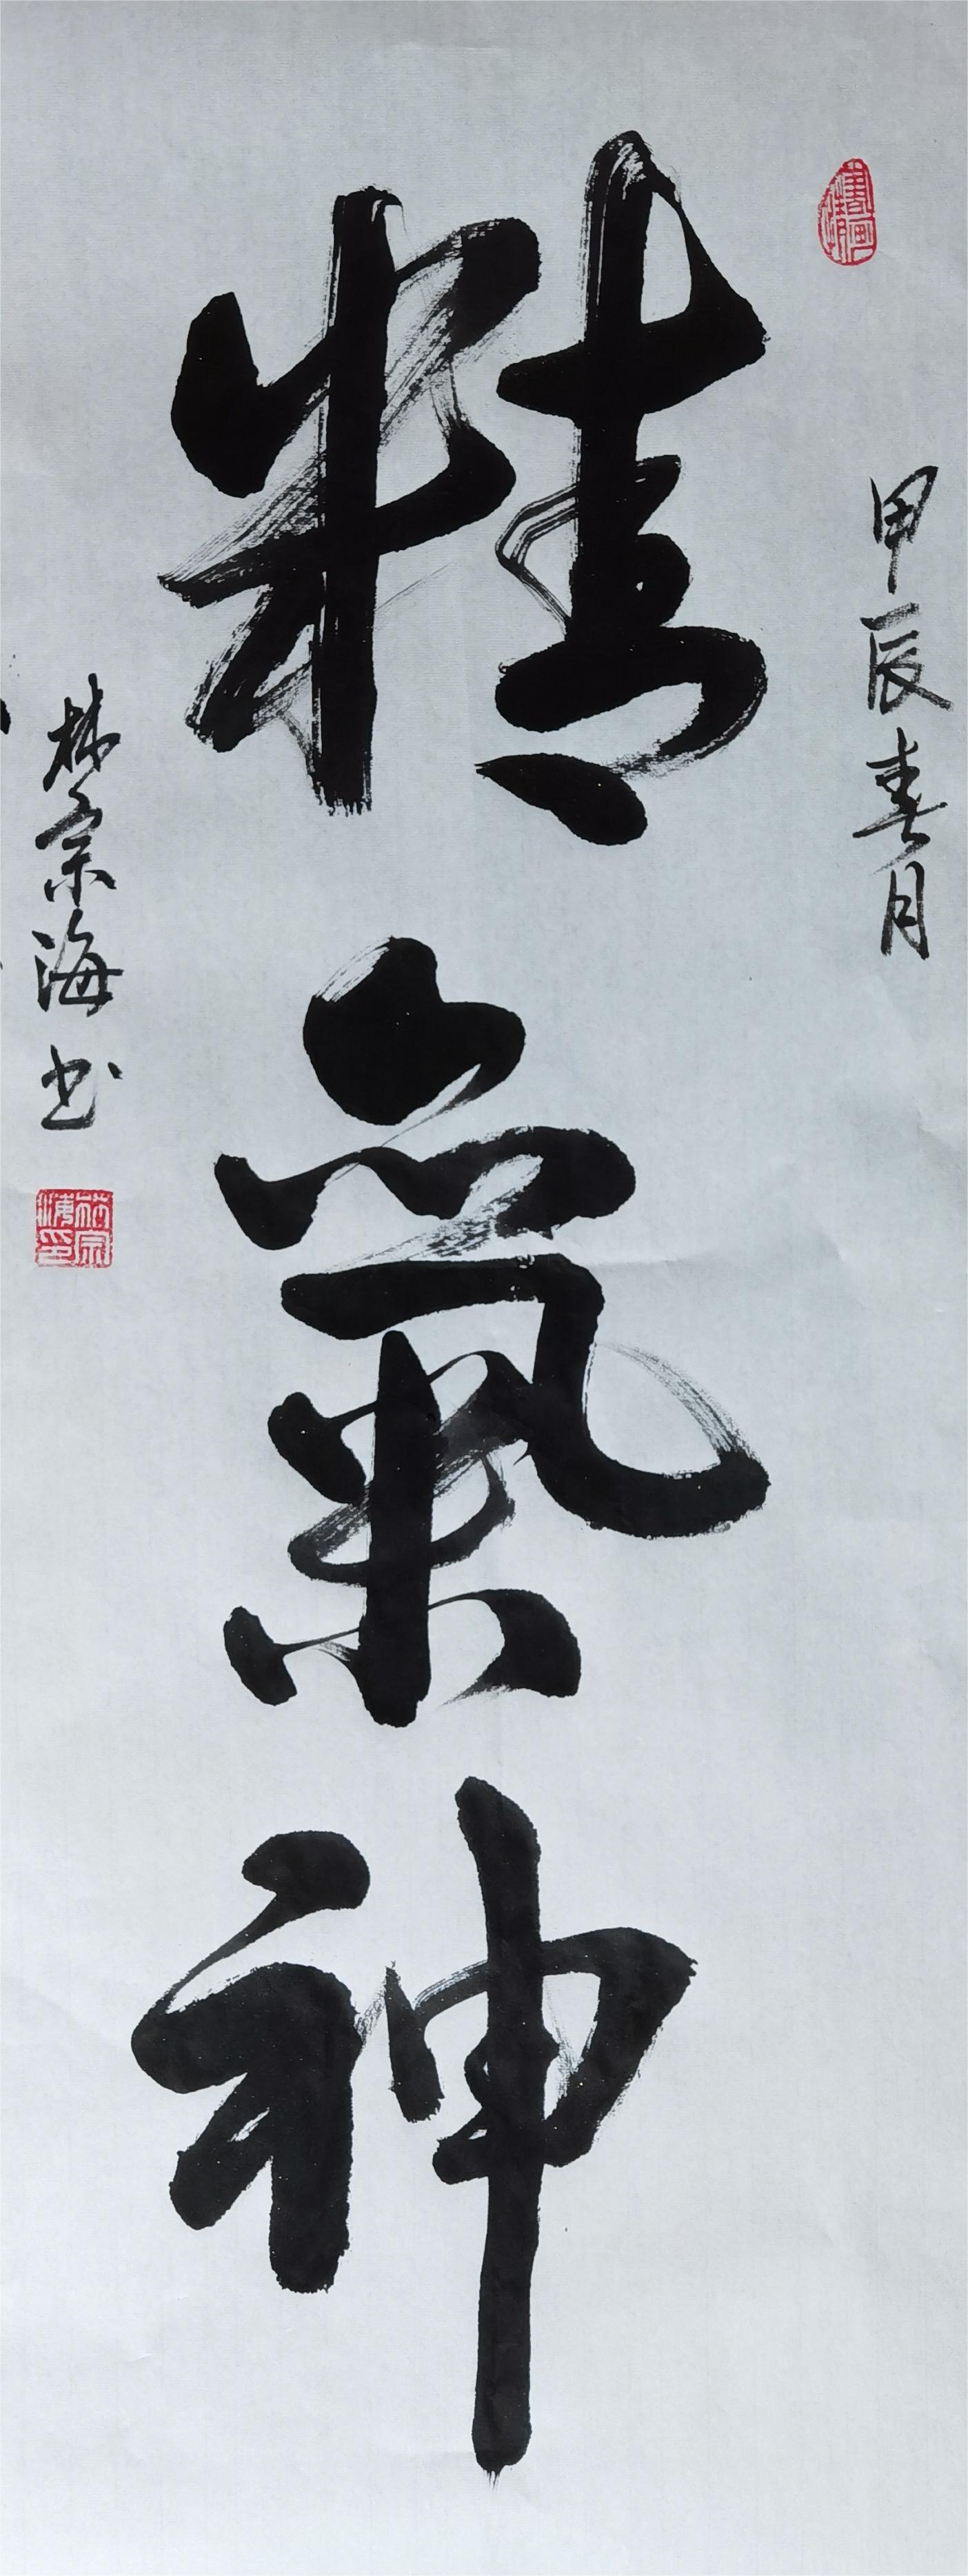 甲辰春月
精氣神
林宗海书